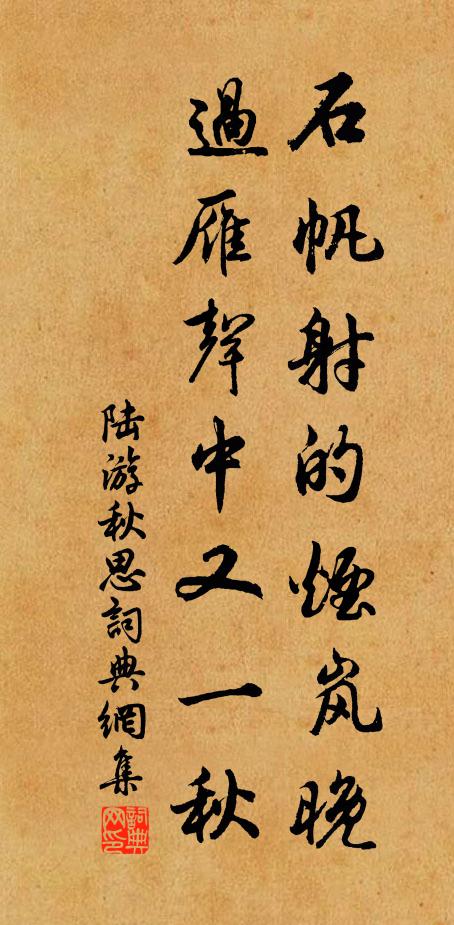 石帆射的煙岚晚
過雁聲中又一秋
陆游秋思詞典網集
詞典网印